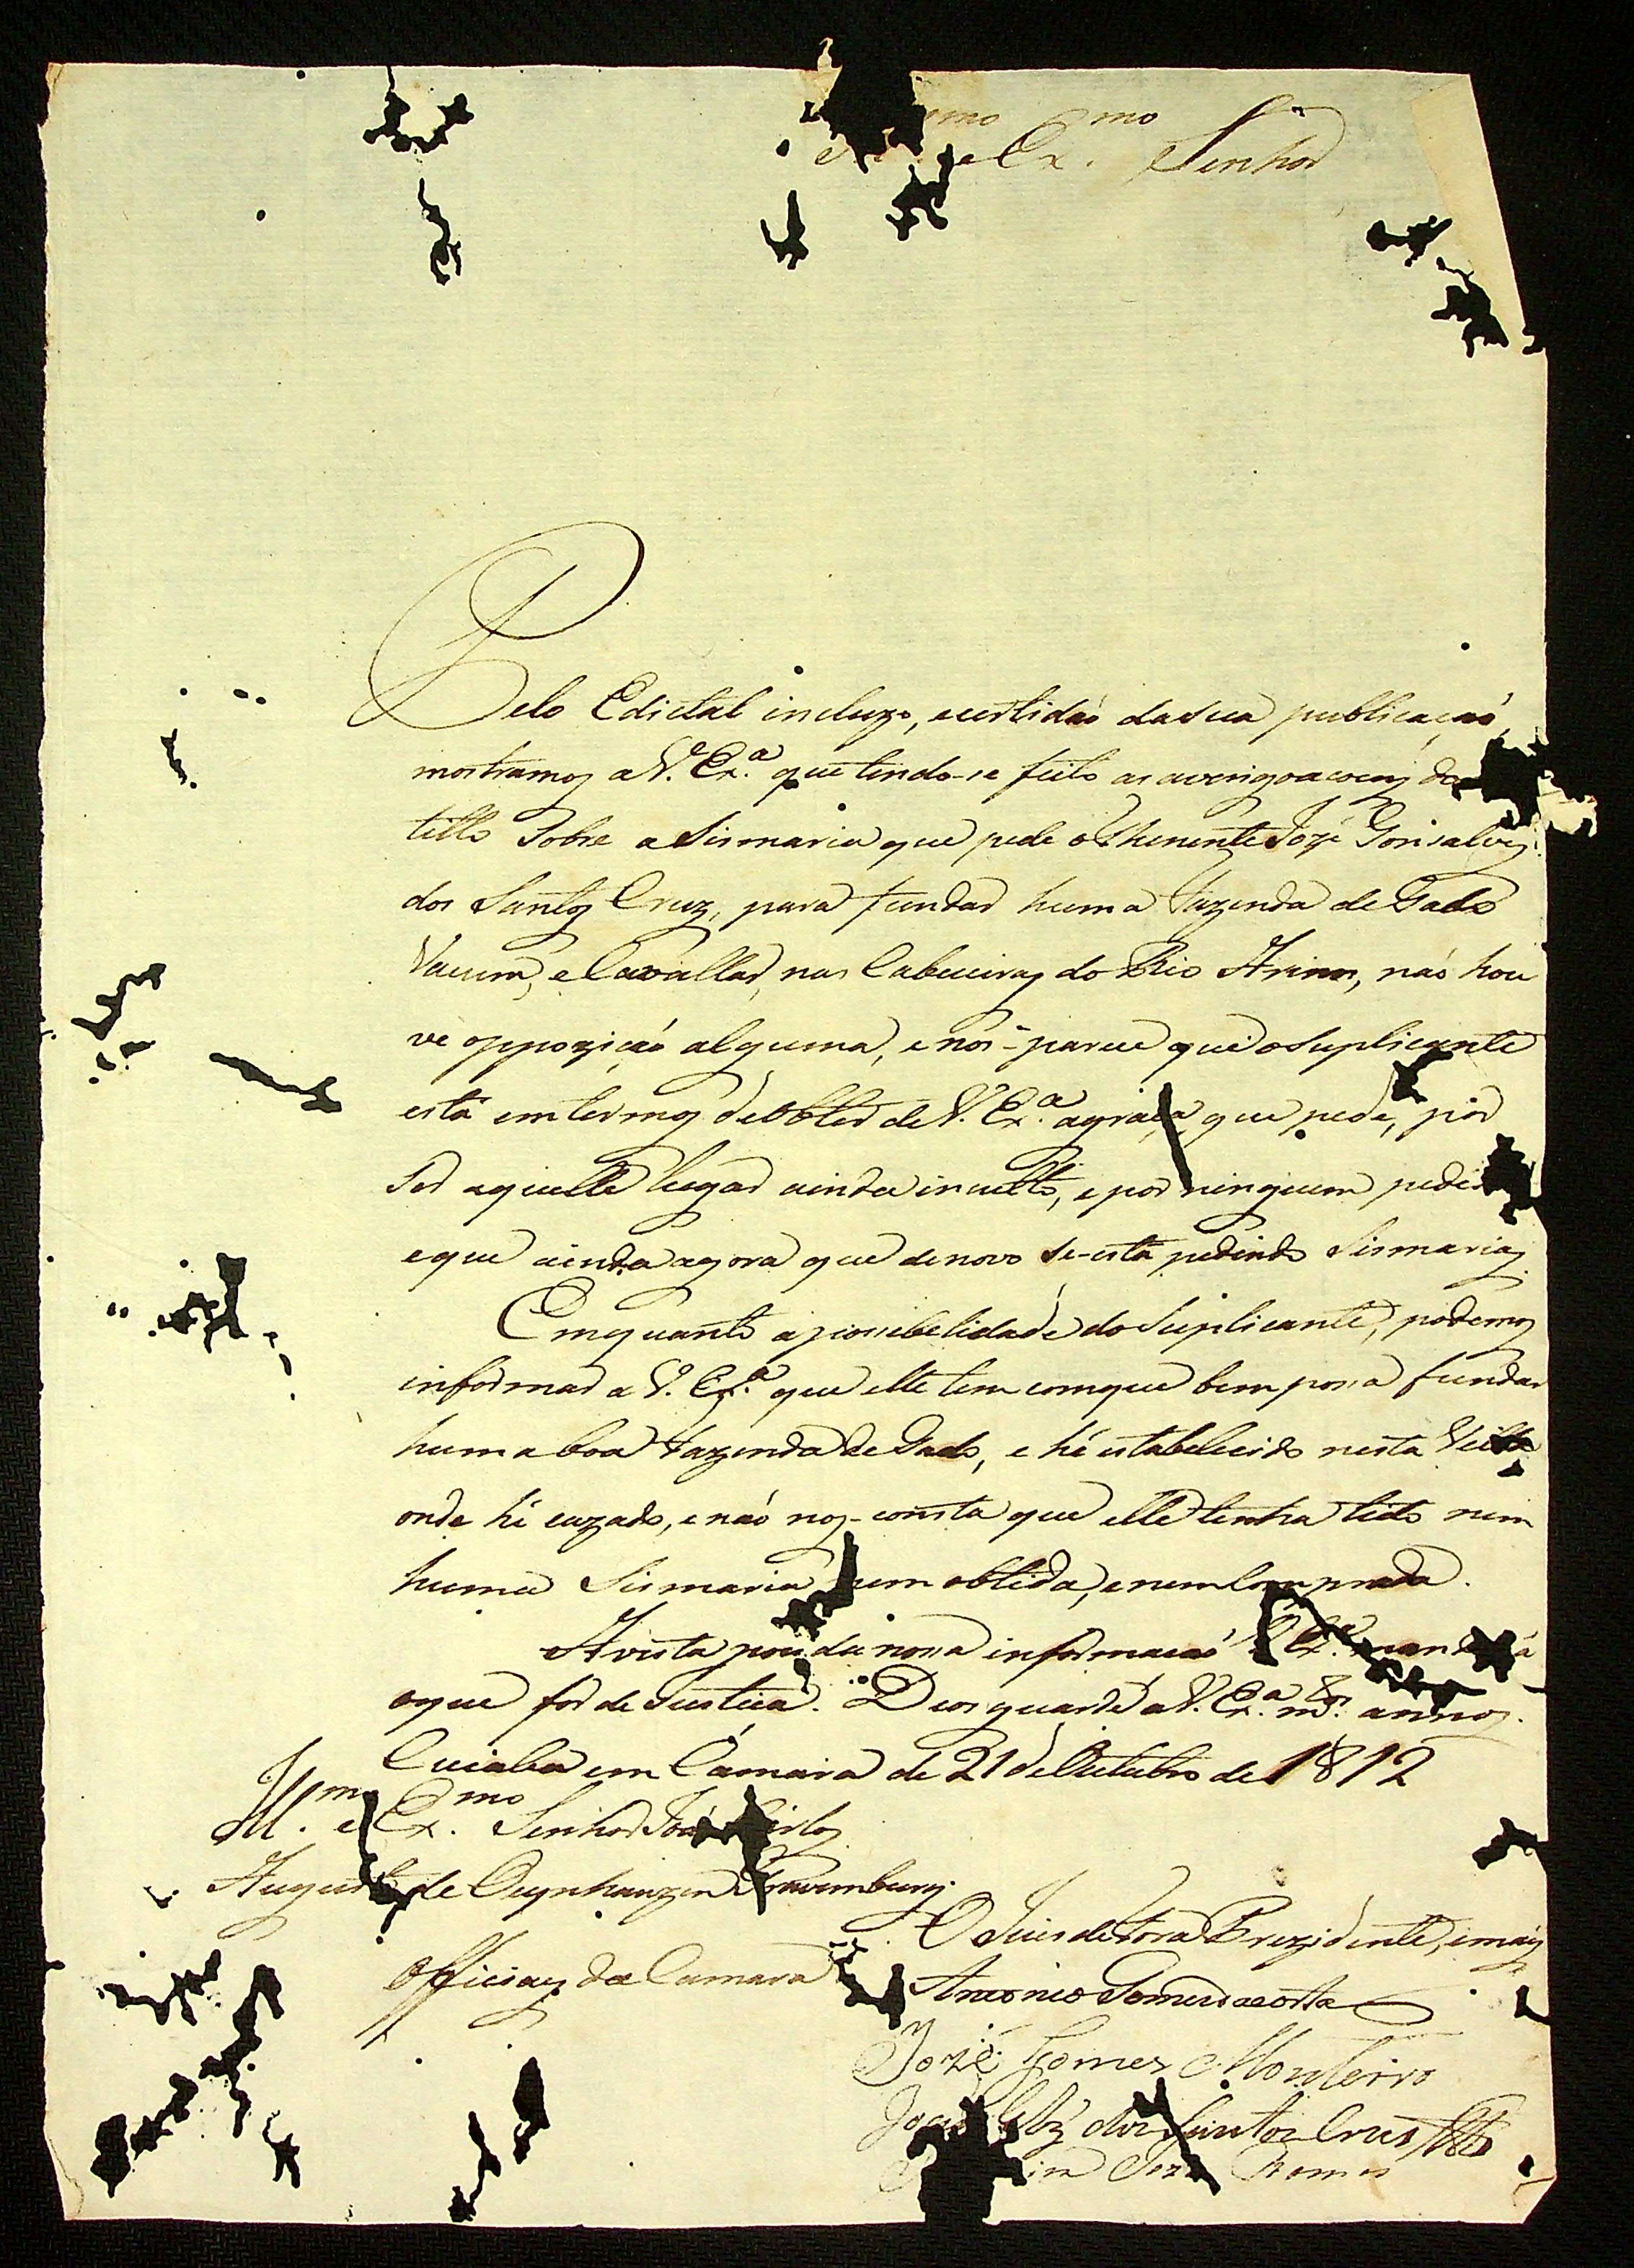 mo e Ex.mo Senhor
Pelo Edictal incluzo, ecertidaó dasua publicaçaó,
mostramos a V. Ex.a que tendo-se feito as averigoacoens do
tillo sobre a Sismaria que pede o Thenente Jozé Gonsalves
dos Santos Cruz, para fundar huma Fazenda de Gado
Vacum, e Cavallar, nas Cabeceiras do Rio Arinos, naó hou
ve oppoziçaó alguma, enós-parece que osuplicante
está emtermos deobter de V. Ex.a agraça, que pede, por
ser aquelle lugar ainda inculto, e por ninguem pedi
eque ainda agora que denovo se-está pedindo Sismarias.
Emquanto apossebelidade do Suplicante, podemos
informar a V. Ex.a que elle tem comque bem possa fundar
huma boa Fazenda de Gado, e hé estabelecido nesta Villa
onde hé cazado, enaó nos-consta que elle tenha tido nem
huma Sismaria nem obtida, enemComprada.
Avista pois da nossa informacaó V. Ex.a mandará
oque for de Justica. Deos guarde a V. Ex.a m.os annos.
Cuiaba em Camara de 21 de Outubro de 1812
Ill.mo e Ex.mo Senhor Joaó Carlos
Augusto de Oeynhauzen Gravemburg.
O Juis de Fora Prezidente, emais
Officiaes da Camara
Antonio Gomes da Costa
Jozé Gomes Monteiro
Glz dos Santos Crus
Joze Ramos